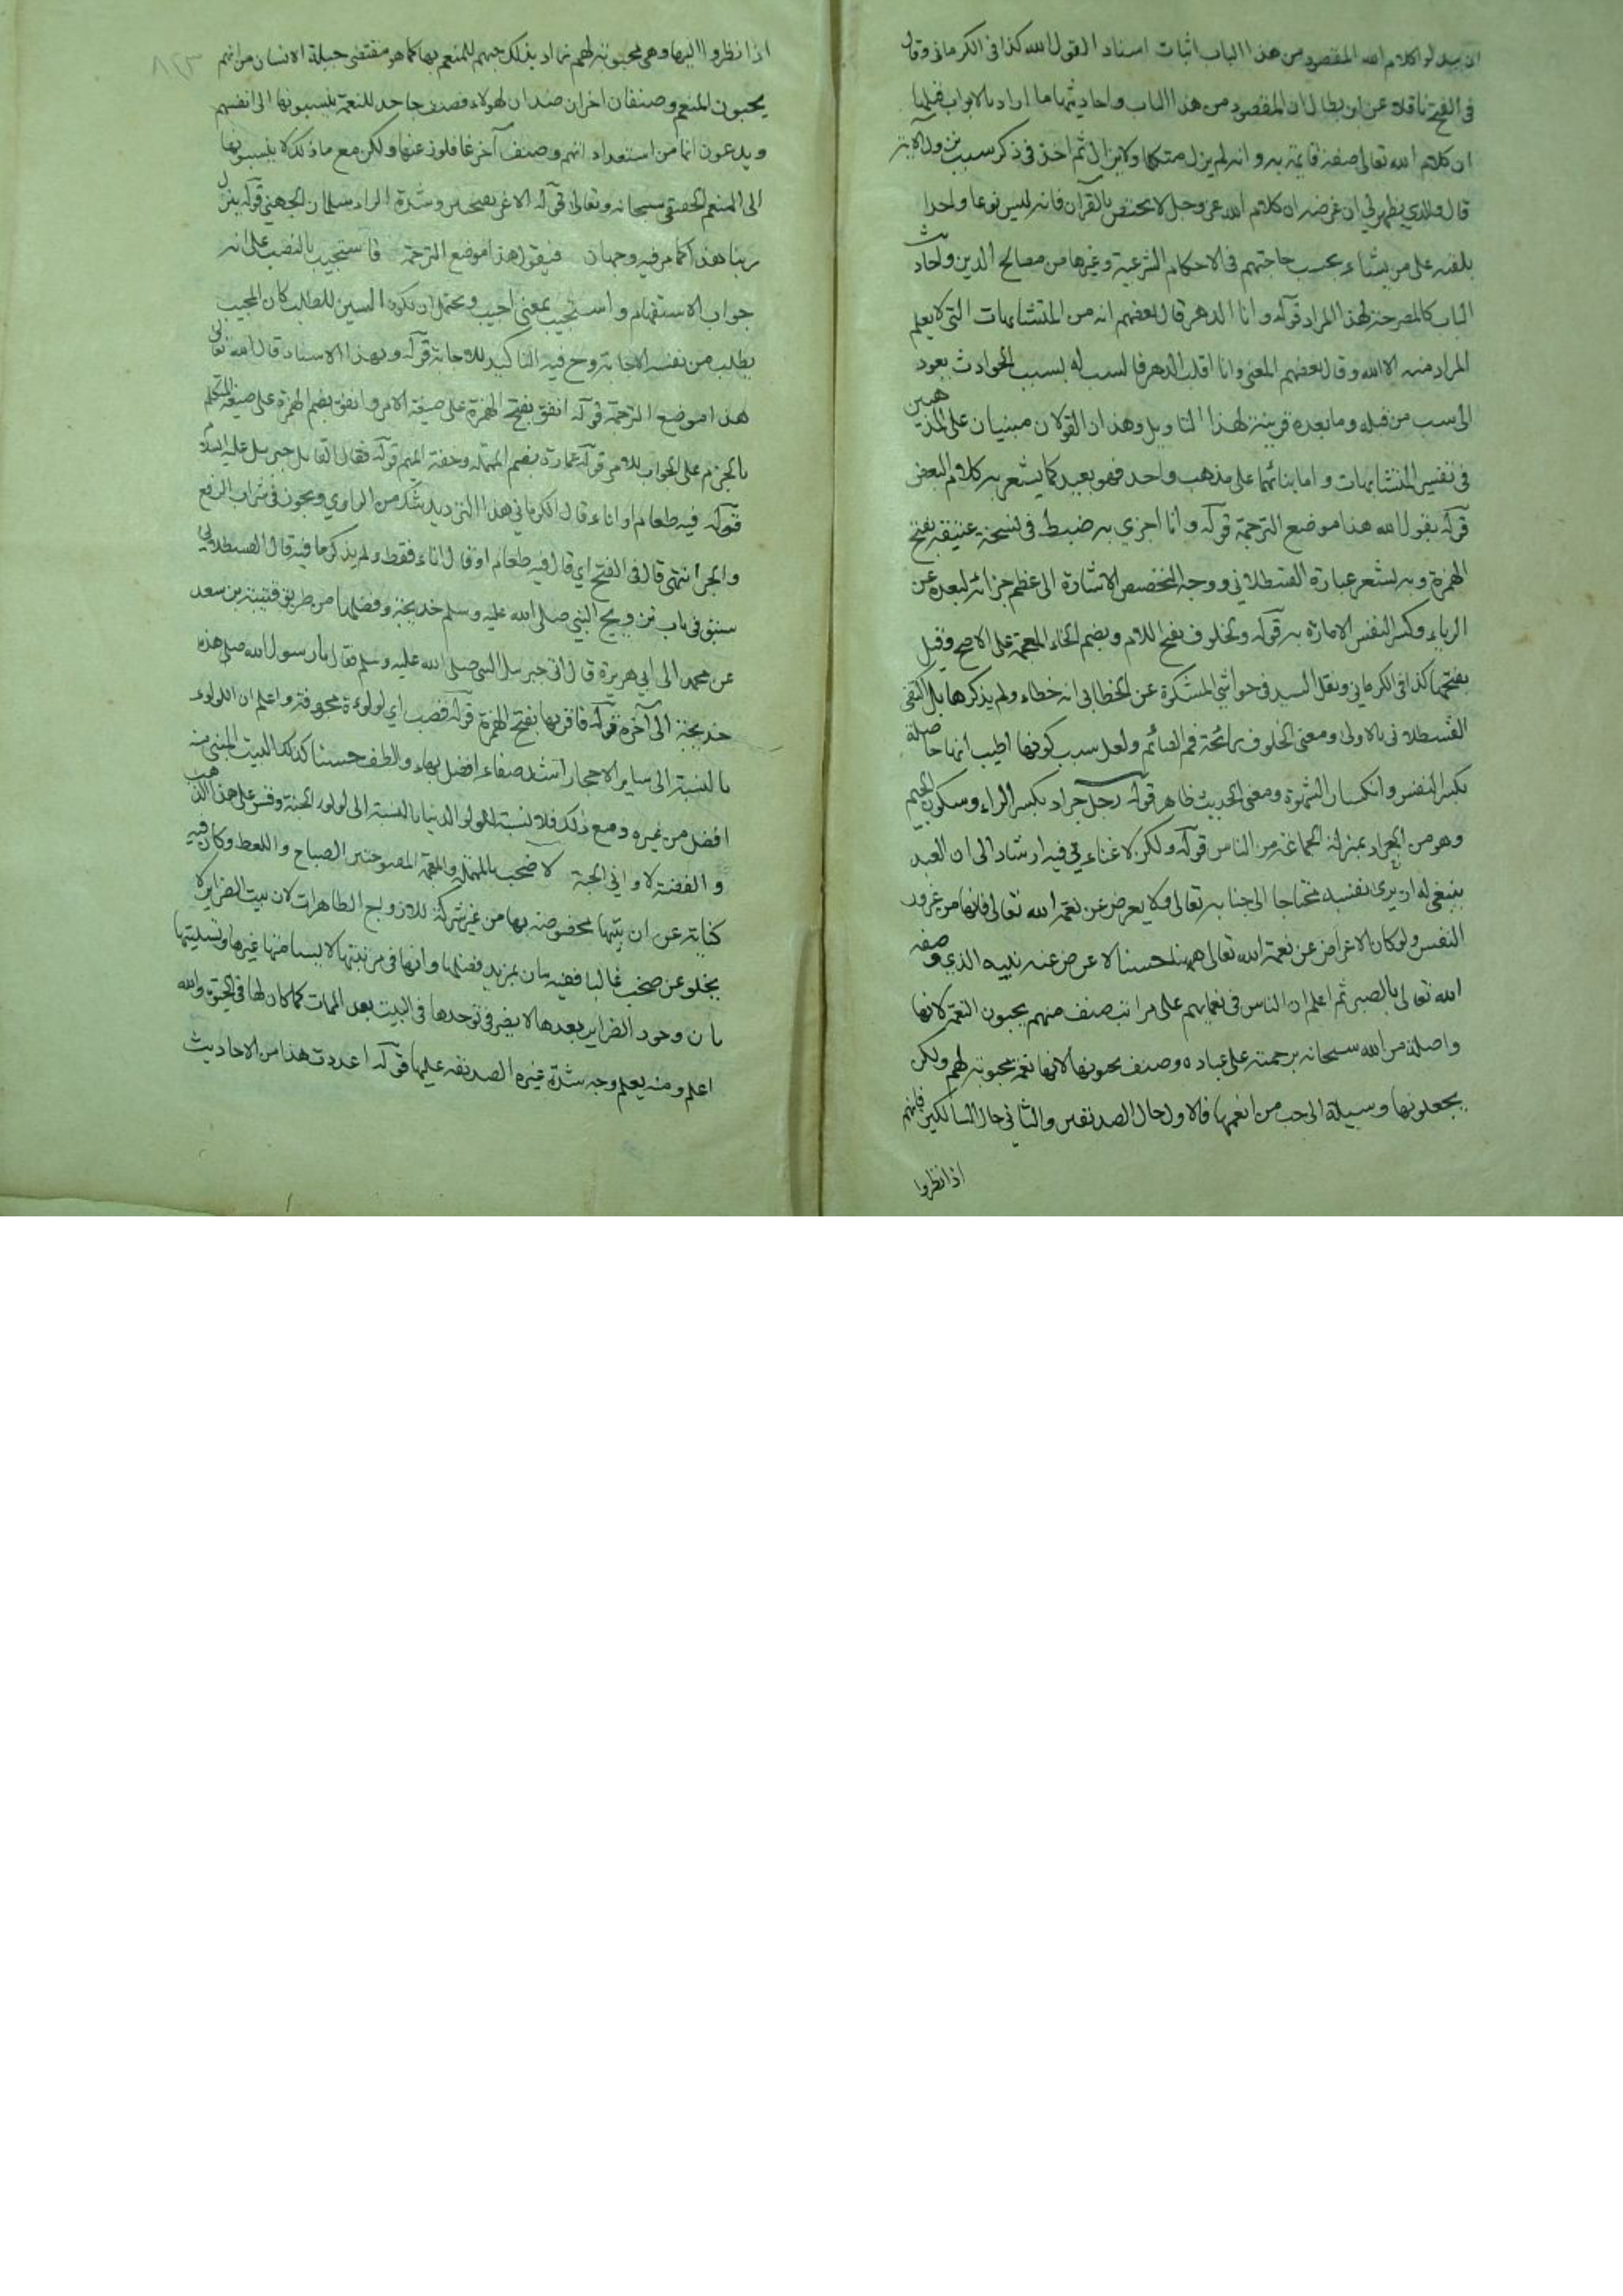 ان يبدلوا كلام الله المقصود من هذا الباب اثبات اسناد القول الله كذا فى الكرمانى وقال
فى الفتح ناقلا عن ابن بطال ان المقصود من هذا الباب واحاديثها ما اراد بالابواب قبلها
ان كلام الله تعالى صفة قائمة به وانه لم يزل متكلما ولا يزال ثم اخذ فى ذكر سبب نزول الآية
قال والذي يظهر لي ان غرضه ان كلام الله عز وجل لا يختص بالقرآن فانه ليس نوعا واحدا
يلقيه على من يشاء بحسب حاجتهم فى الاحكام الشرعية وغيرها من مصالح الدين واحاديث
الباب كالمصرحة لهذا المراد قوله وانا الدهر قال بعضهم انه من المتشابهات التي لا يعلم
المراد منه الا الله وقال بعضهم المعنى وانا اقلب الدهر فا لسب له بسبب الحوادث يعود
الى سب من قبله وما بعده قرينة لهذا التاويل وهذان القولان مبنيان على المذهبين
فى تفسير المتشابهات واما بنائهما على مذهب واحد فهو بعيد كما يشعر به كلام البعض
قوله يقول الله هذا موضع الترجمة قوله وانا اجزي به ضبط فى نسخة عتيقة بفتح
الهمزة وبه يشعر عبارة القسطلاني ووجه التخصيص الاشارة الى عظم جزائه لبعده عن
الرياء وكسر النفس الامارة به قوله ولخلوف بفتح اللام وبضم الخاء المعجمة على الاصح وقيل
بفتحها كذا فى الكرماني ونقل السيد فى حواشي المشكوة عن الخطابي انه خطاء ولم يذكرها بل اكتفى
القسطلانى بالاولى ومعنى الخلوف رائحة فم الصائم ولعل سبب كونها اطيب انها حاصلة
بكسر النفس وانكسار الشهوة ومعنى الحديث ظاهر قوله رجل جراد بكسر الراء وسكون الجيم
وهو من الجراد بمنزلة الجماعة من الناس قوله ولكن لا غناء بي فيه ارشاد الى ان العبد
ينبغي له ان يرى نفسه محتاجا الى جنابه تعالى ولا يعرض عن نعمة الله تعالى فانها من غرور
النفس ولو كان الاعراض عن نعمة الله تعالى حسنا لاعرض عنه نبيه الذي وصفه
الله تعالى بالصبر ثم اعلم ان الناس فى نعمائهم على مراتب صنف منهم يحبون النعمة لانها
واصلة من الله سبحانه برحمته على عباده وصنف يحبونها لانها نعمة محبوبة لهم ولكن
يجعلونها وسيلة الى حب من انعمها فالاول حال الصديقين والثاني حال السالكين فانهم
اذا نظروا
٨٢٣
اذا نظروا اليها وهي محبوبة لهم زاد بذلك حبهم للمنعم بها كما هو مقتضى جبلة الانسان من انهم
يحبون المنعم وصنفان اخران ضدان لهولاء فصنف جاحد للنعمة ينسبونها الى انفسهم
ويدعون انها من استعداد انهم وصنف آخر غافلون عنها ولكن مع ذلك لا ينسبونها
الى المنعم الحقيقي سبحانه وتعالى قوله الاغر بفتحتين وشدة الراء سلمان الجهني قوله ينزل
ربنا هذا كما مر فيه وجهان فيقول هذا موضع الترجمة فاستجيب بالنصب على انه
جواب الاستفهام واستجيب بمعنى اجيب ويحتمل ان تكون السين للطلب كان المجيب
يطلب من نفسه الاجابة وح فيه التاكيد للاجابة قوله وبهذا الاسناد قال الله تعالى
هذا موضع الترجمة قوله انفق بفتح الهمزة على صيغة الامر وانفق بضم الهمزة على صيغة المتكلم
بالجزم على الجواب للامر قوله عمارة بضم المهملة وخفة الميم قوله فقال القائل جبريل عليه السلام
قوله فيه طعام او اناء قال الكرماني هذا الترديد شك من الراوي ويجوز فى شراب الرفع
والجر انتهى قال فى الفتح اي قال فيه طعام او قال اناء فقط ولم يذكر ما فيه قال القسطلاني
سبق فى باب تزويج النبي صلى الله عليه وسلم خديجة وفضلها من طريق قتيبة بن سعد
عن محمد الى ابي هريرة قال اتى جبريل النبي صلى الله عليه وسلم فقال يا رسول الله صلى هذه
خديجة الى آخره قوله فاقرها بفتح الهمزة قوله قصب اي لولوءة مجوفة واعلم ان اللولوء
بالنسبة الى ساير الاحجار اشد صفاء افضل بهاء والطف حسنا كذلك البيت المبني منه
افضل من غيره ومع ذلك فلا نسبة للولو الدنيا بالنسبة الى لولوء الجنة وقس على هذا الذهب
والفضة لاواني الجنة لا صخب بالمهملة والمعجمة المفتوحتين الصياح واللغط وكان فيه
كناية عن ان بيتها مخصوصة بها من غير شركة للازواج الطاهرات لان بيت الضراير لا
يخلو عن صخب غالبا ففيه بيان بمزيد فضلها وانها فى مرتبتها لا يساهمها غيرها وتسليتها
بان وجود الضراير بعدها لا يضر فى توحدها فى البيت بعد الممات كما كان لها فى الحيوة والله
اعلم ومنه يعلم وجه شدة غيرة الصديقة عليها قوله اعددت هذا من الاحاديث